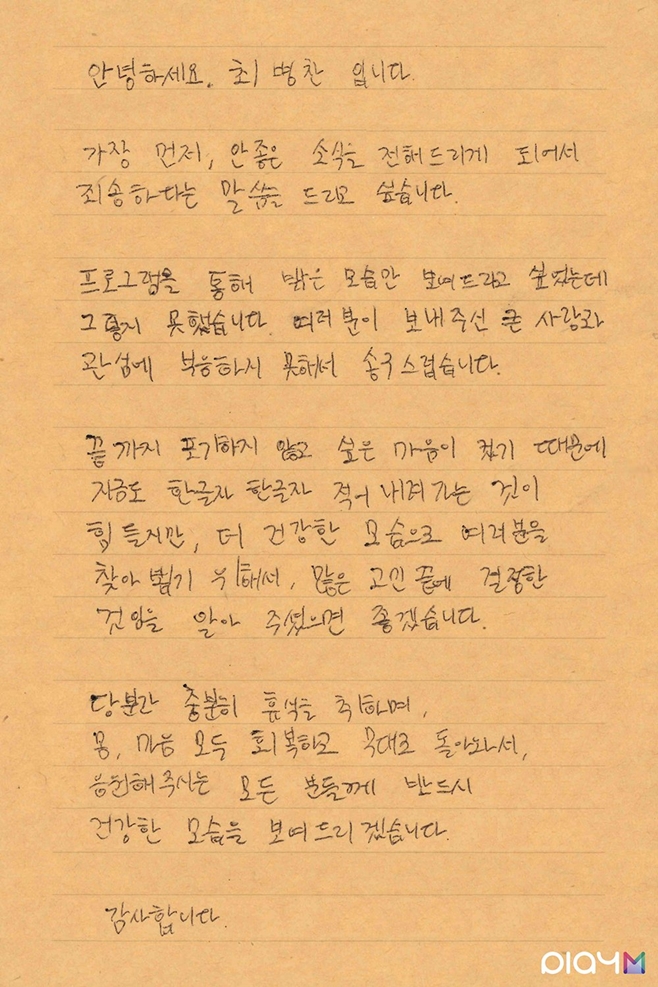 안녕하세요. 최 병찬 입니다.
가장 먼저, 안좋은 소식을 전해드리게 되어서
죄송하다는 말씀을 드리고 싶습니다.
프로그램을 통해 밝은 모습만 보여드리고 싶었는데
그렇지 못했습니다. 여러분이 보내주신 큰 사랑과
관심에 보응하지 못해서 송구스럽습니다.
끝까지 포기하지 않고 싶은 마음이 컸기 때문에
지금도 한글자 한글자 적어 내려가는 것이
힘들지만, 더 건강한 모습으로 여러분을
찾아 뵙기 위해서, 많은 고민 끝에 결정한
것임을 알아 주셨으면 좋겠습니다.
당분간 충분히 휴식을 취하며,
몸, 마음 모두 회복하고 무대로 돌아와서,
응원해주시는 모든 분들께 반드시
건강한 모습을 보여드리겠습니다.
감사합니다.
PlayM